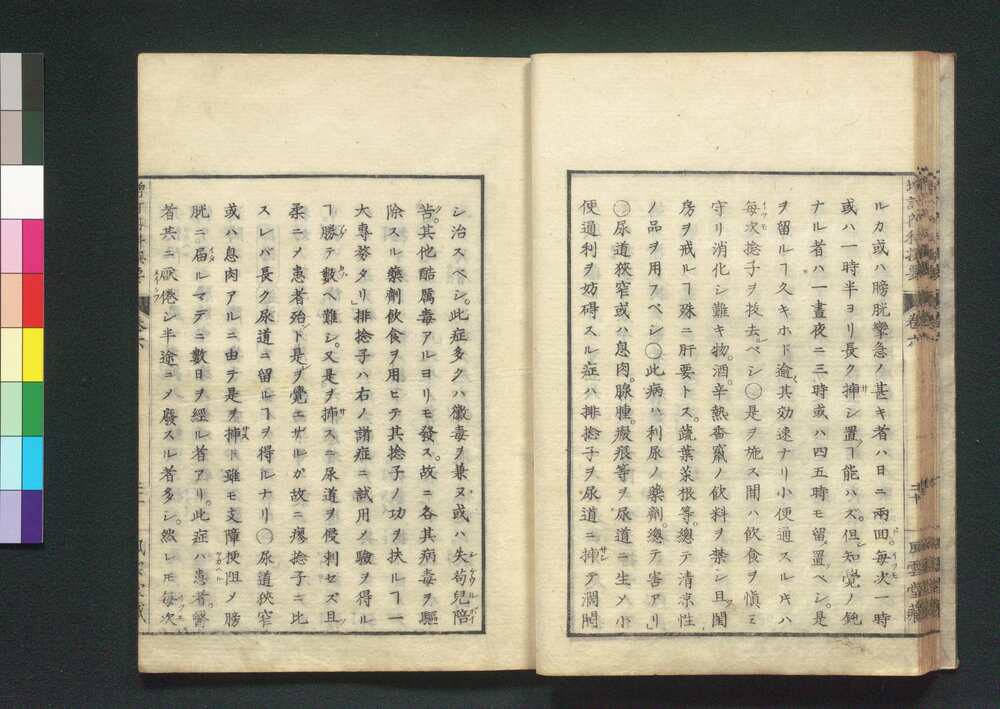 ルカ或ハ膀胱攣急ノ甚キ者ハ日ニ兩回毎次一時
或ハ一時半ヨリ長ク挿シ置ヿ能ハズ。但知覺ノ鈍
ナル者ハ一晝夜ニ三時或ハ四五時モ留置ベシ。是
ヲ留ルヿ久キホド逾其効速ナリ小便通スル片ハ
毎次捻子ヲ拔去ベシ○是ヲ施ス間ハ飲食ヲ愼ミ
守リ消化シ難キ物。酒。辛熱香竄ノ飲料ヲ禁シ且閨
房ヲ戒ルヿ殊ニ肝要トス。蔬葉菜根等。總テ清凉性
ノ品ヲ用フベシ○此病ハ利尿ノ藥劑。總テ害アリ
○尿道狹窄或ハ息肉。腺腫。瘢痕等ヲ尿道ニ生ノ小
便通利ヲ妨碍スル症ハ排捻子ヲ尿道ニ挿テ濶開
シ治スベシ。此症多クハ黴毒ヲ兼ヌ或ハ失苟兒陪
苦。其他酷厲毒アルヨリモ發ス。故ニ各其病毒ヲ驅
除スル藥劑飲食ヲ用ヒテ其捻子ノ功ヲ扶ルヿ一
大專務タリ排捻子ハ右ノ諸症ニ試用ノ驗ヲ得ル
ヿ勝テ數ヘ難シ。又是ヲ挿スニ尿道ヲ侵刺セズ且
柔ニノ患者殆ト是ヲ覺エザルガ故ニ瘳捻子ニ比
スレバ長ク尿道ニ留ルヿヲ得ルナリ○尿道狹窄
或ハ息肉アルニ由テ是ヲ挿ト雖モ支障便阻ノ膀
胱ニ届ルマデニ數日ヲ經ル者アリ。此症ハ患者醫
者共ニ厭倦シ半途ニノ廢スル者多シ。然レモ毎次